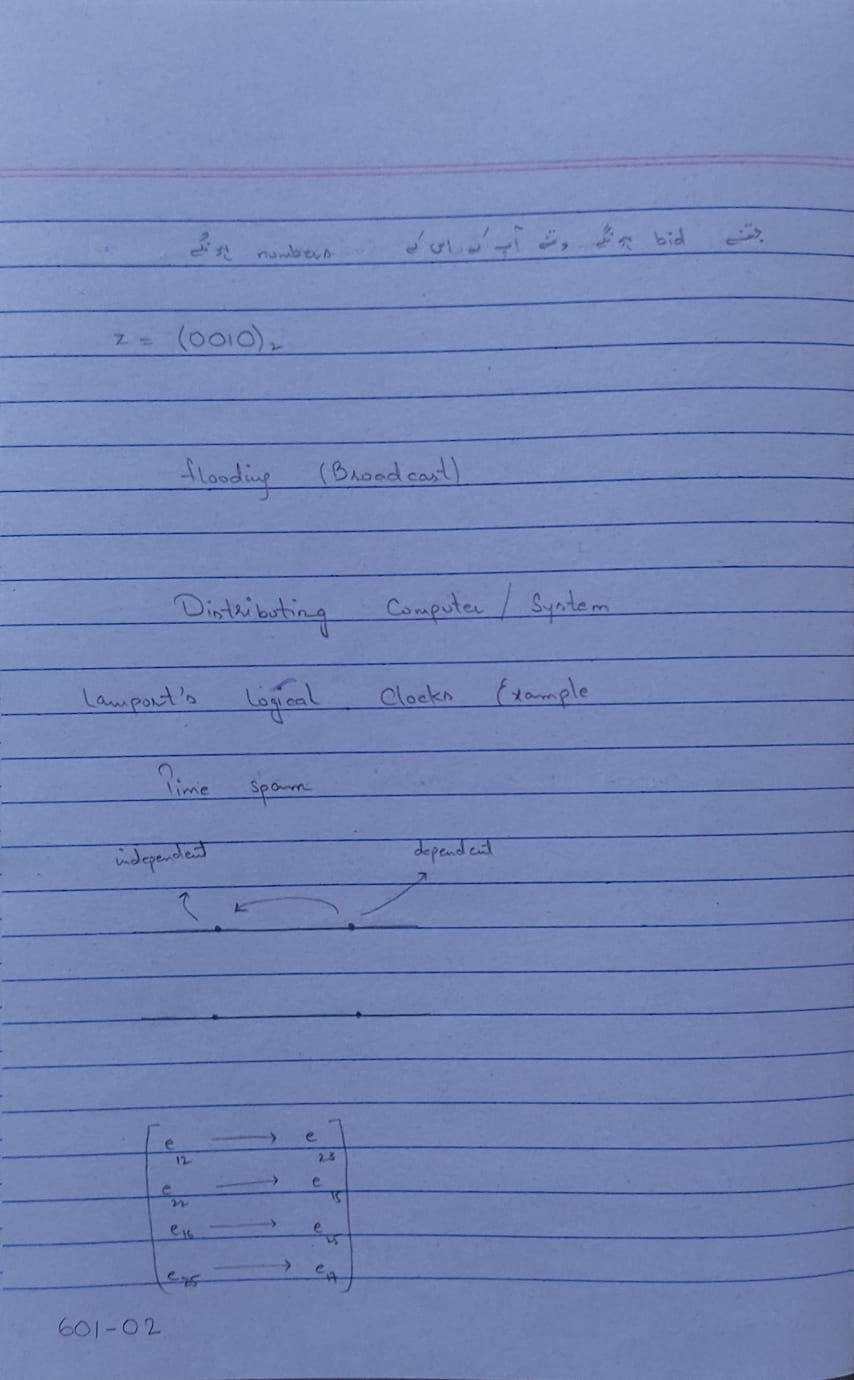 جتنے bid ہونگے وتنے آپ کے اس کے numbers ہونگے
z = (0010)₂
flooding (Broadcast)
Distributing Computer / System
Lamport's Logical Clocks Example
Time spam
independent dependent
e₁₂ → e₂₃
e₂₂ → e₁₅
e₁₆ → e₂₅
e₂₅ → e₁₇
601-02